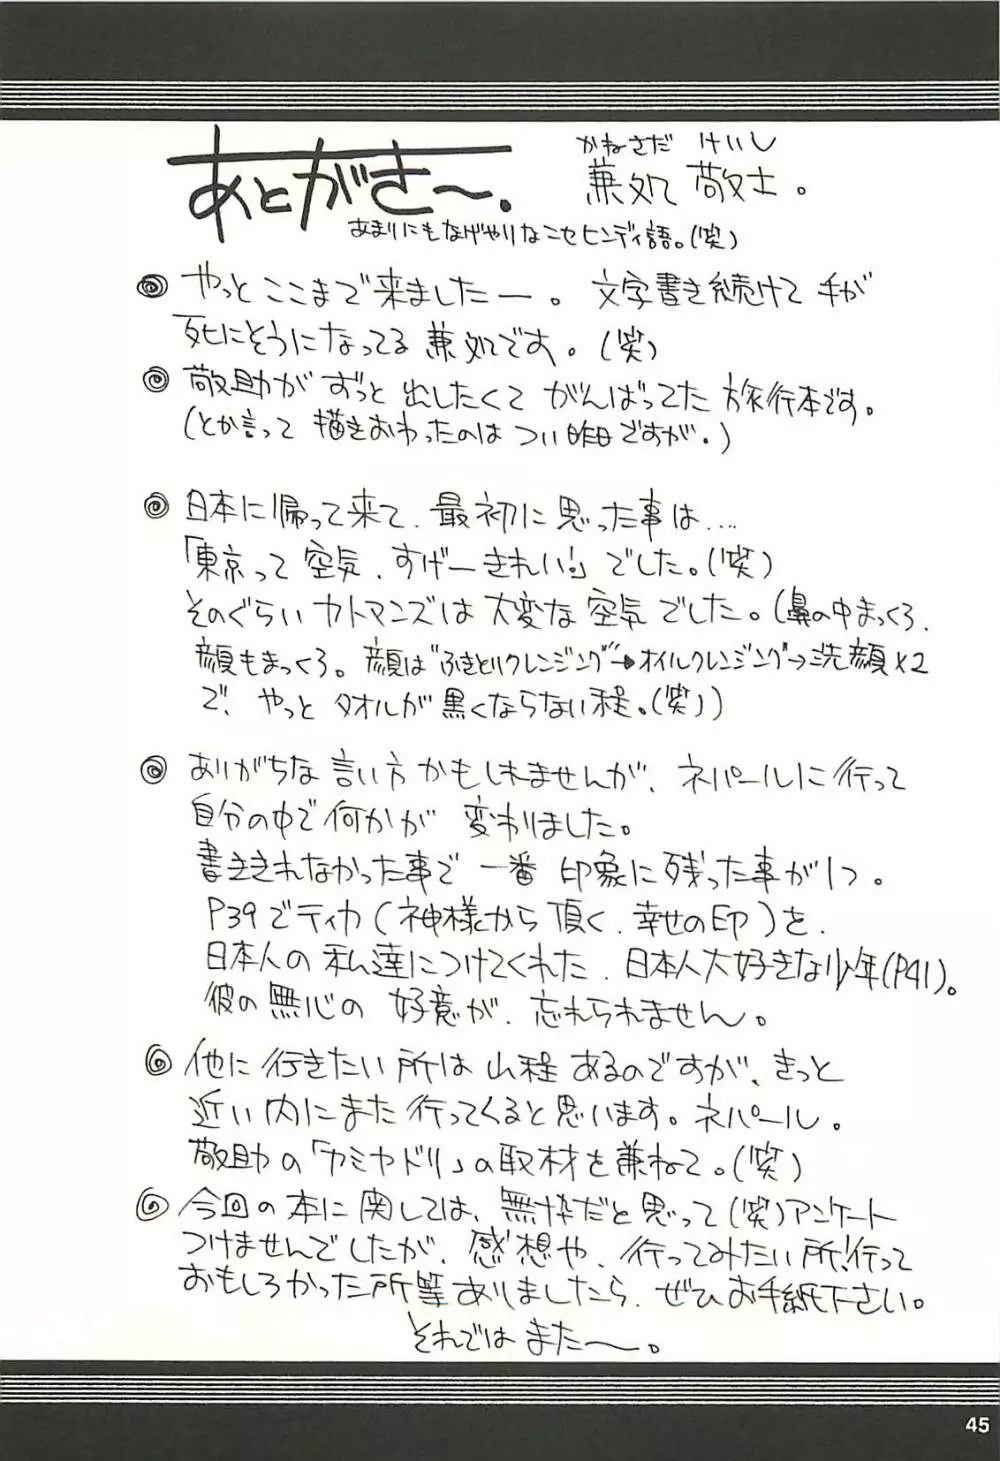 あとがき〜。
かねさだ けいし
兼処 敬士。
あまりにもなげやりなニセヒンディ語。(笑)
やっとここまで来ましたー。 文字書き続けて 手が
死にそうになってる 兼処です。(笑)
敬助が ずっと 出したくて がんばってた 旅行本です。
(とか言って 描きおわったのは つい昨日ですが。)
日本に帰って来て、最初に思った事は....
「東京って 空気、すげーきれい!」でした。(笑)
そのぐらい カトマンズは 大変な 空気でした。(鼻の中まっくろ、
顔もまっくろ。顔は"ふきとりクレンジング"→オイルクレンジング→洗顔×2
で、やっと タオルが 黒くならない程。(笑))
ありがちな 言い方 かもしれませんが、ネパールに行って
自分の中で 何かが 変わりました。
書ききれなかった事で 一番 印象に残った事が1つ。
P39でティカ(神様から 頂く、幸せの印)を、
日本人の 私達につけてくれた、日本人大好きな少年(P41)。
彼の無心の 好意が、忘れられません。
他に 行きたい 所は 山程 あるのですが、きっと
近い内に また 行ってくると思います。ネパール。
敬助の「カミヤドリ」の取材を兼ねて。(笑)
今回の 本に 関しては、無粋だと思って(笑)アンケート
つけませんでしたが、感想や、行ってみたい所!行って
おもしろかった所等ありましたら、ぜひお手紙下さい。
それでは また〜。
45